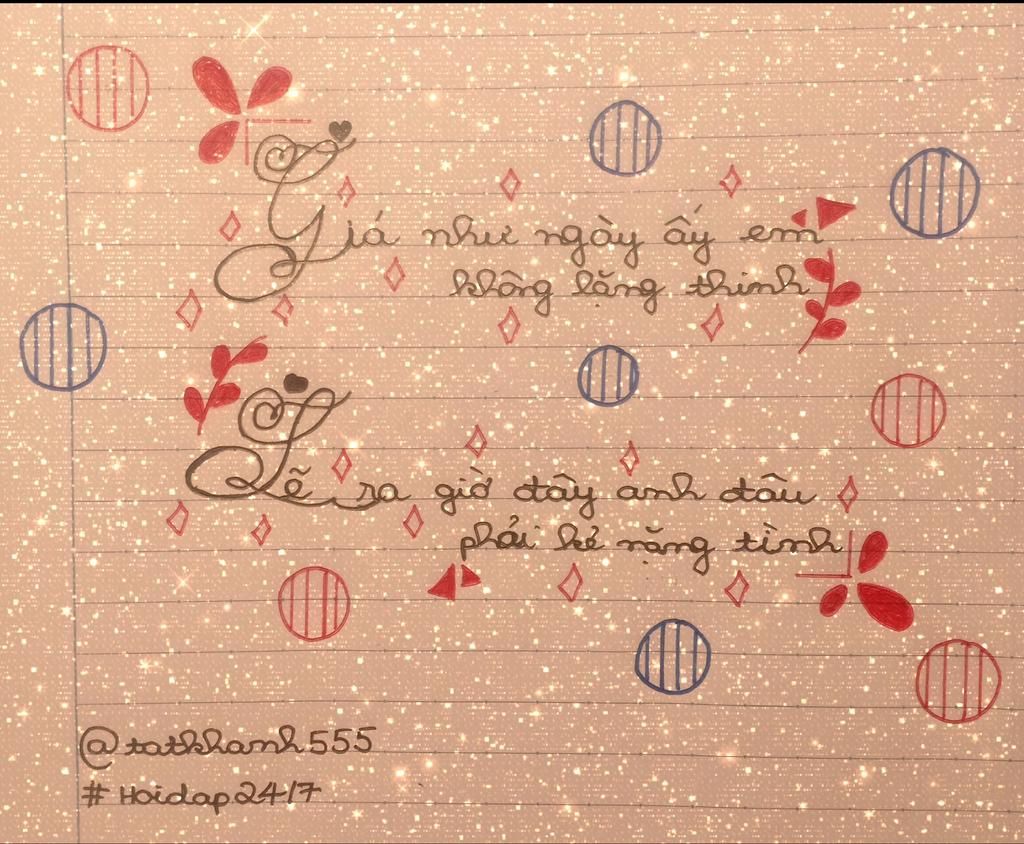 Giá như ngày ấy em
không lặng thinh
Lẽ ra giờ đây anh đâu
phải kẻ nặng tình
@tatkhanh555
#Hoidap247